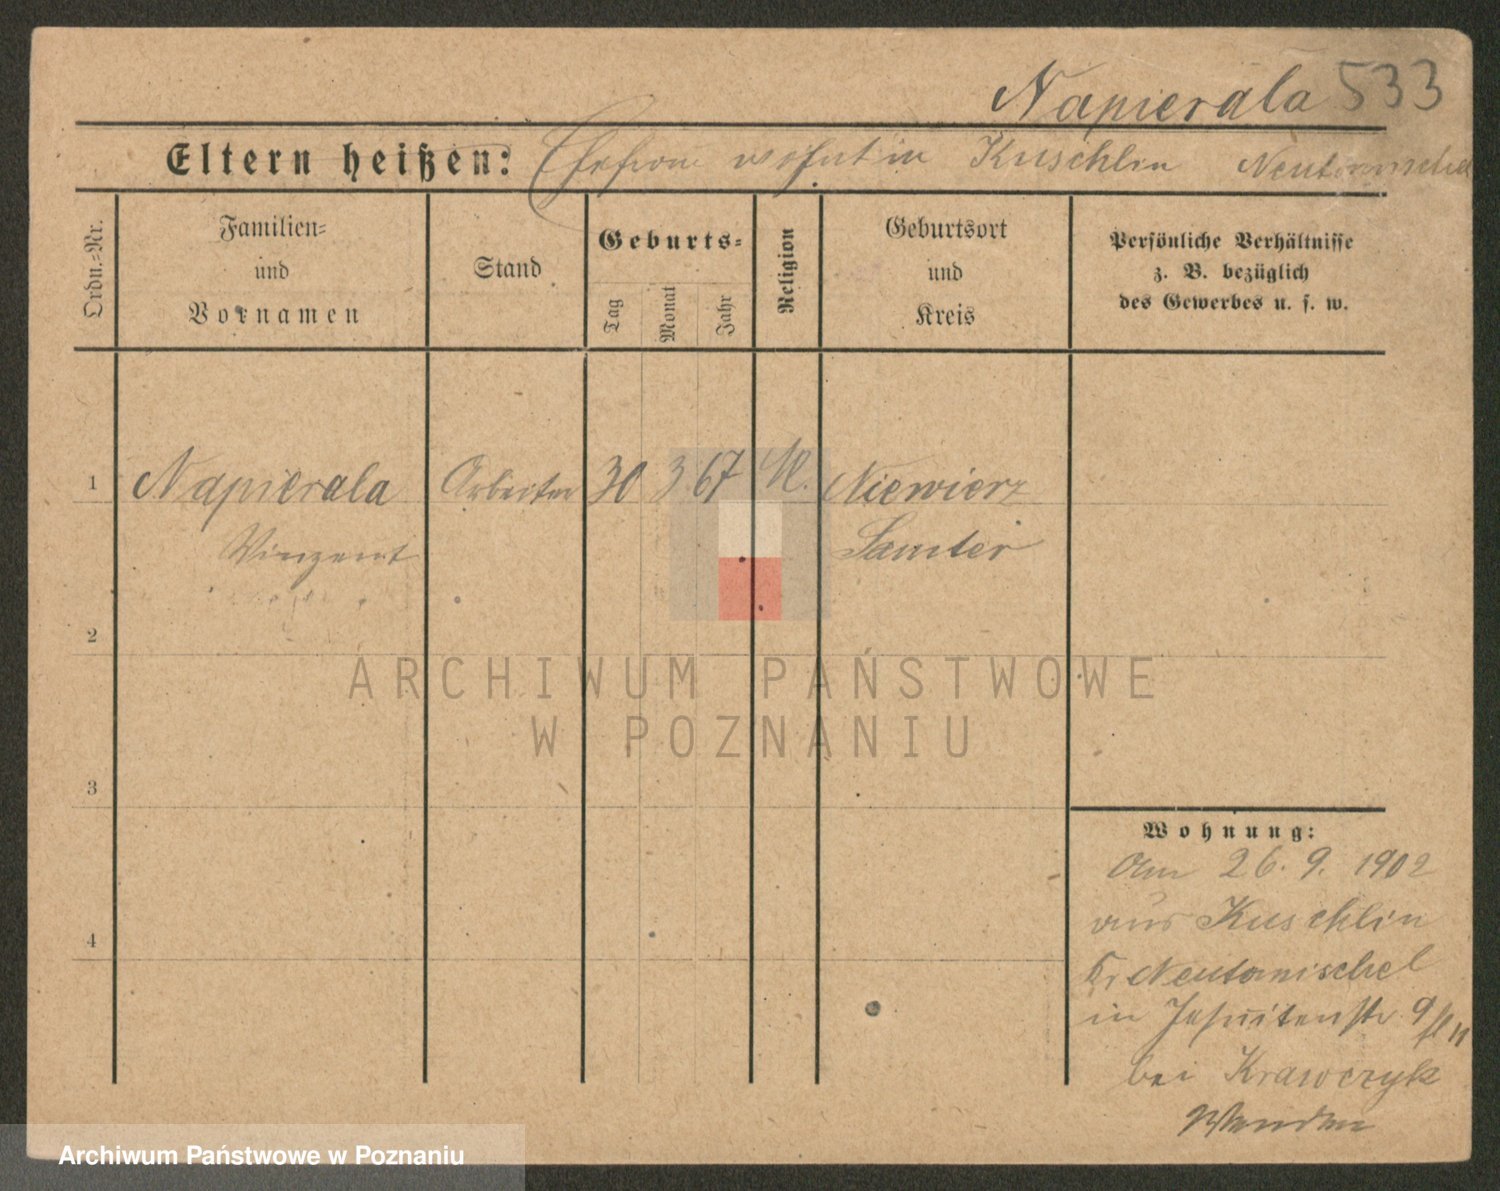 Napierala 533
Eltern heißen: Ehefrau wohnt in Kuschlin Neutomischel
Ordn.-Nr.
Familien-
und
Vornamen
Stand
Geburts-
Tag
Monat
Jahr
Religion
Geburtsort
und
Kreis
Persönliche Verhältnisse
z. B. bezüglich
des Gewerbes u. s. w.
1 Napierala Arbeiter 30 3 67 K. Niewierz
Vinzent Samter
2
ARCHIWUM PAŃSTWOWE
W POZNANIU
3
Wohnung:
Am 26. 9. 1902
aus Kuschlin
4
Kr Neutomischel
in Jesuitenstr 9
bei Krawczyk
Wenden
Archiwum Państwowe w Poznaniu